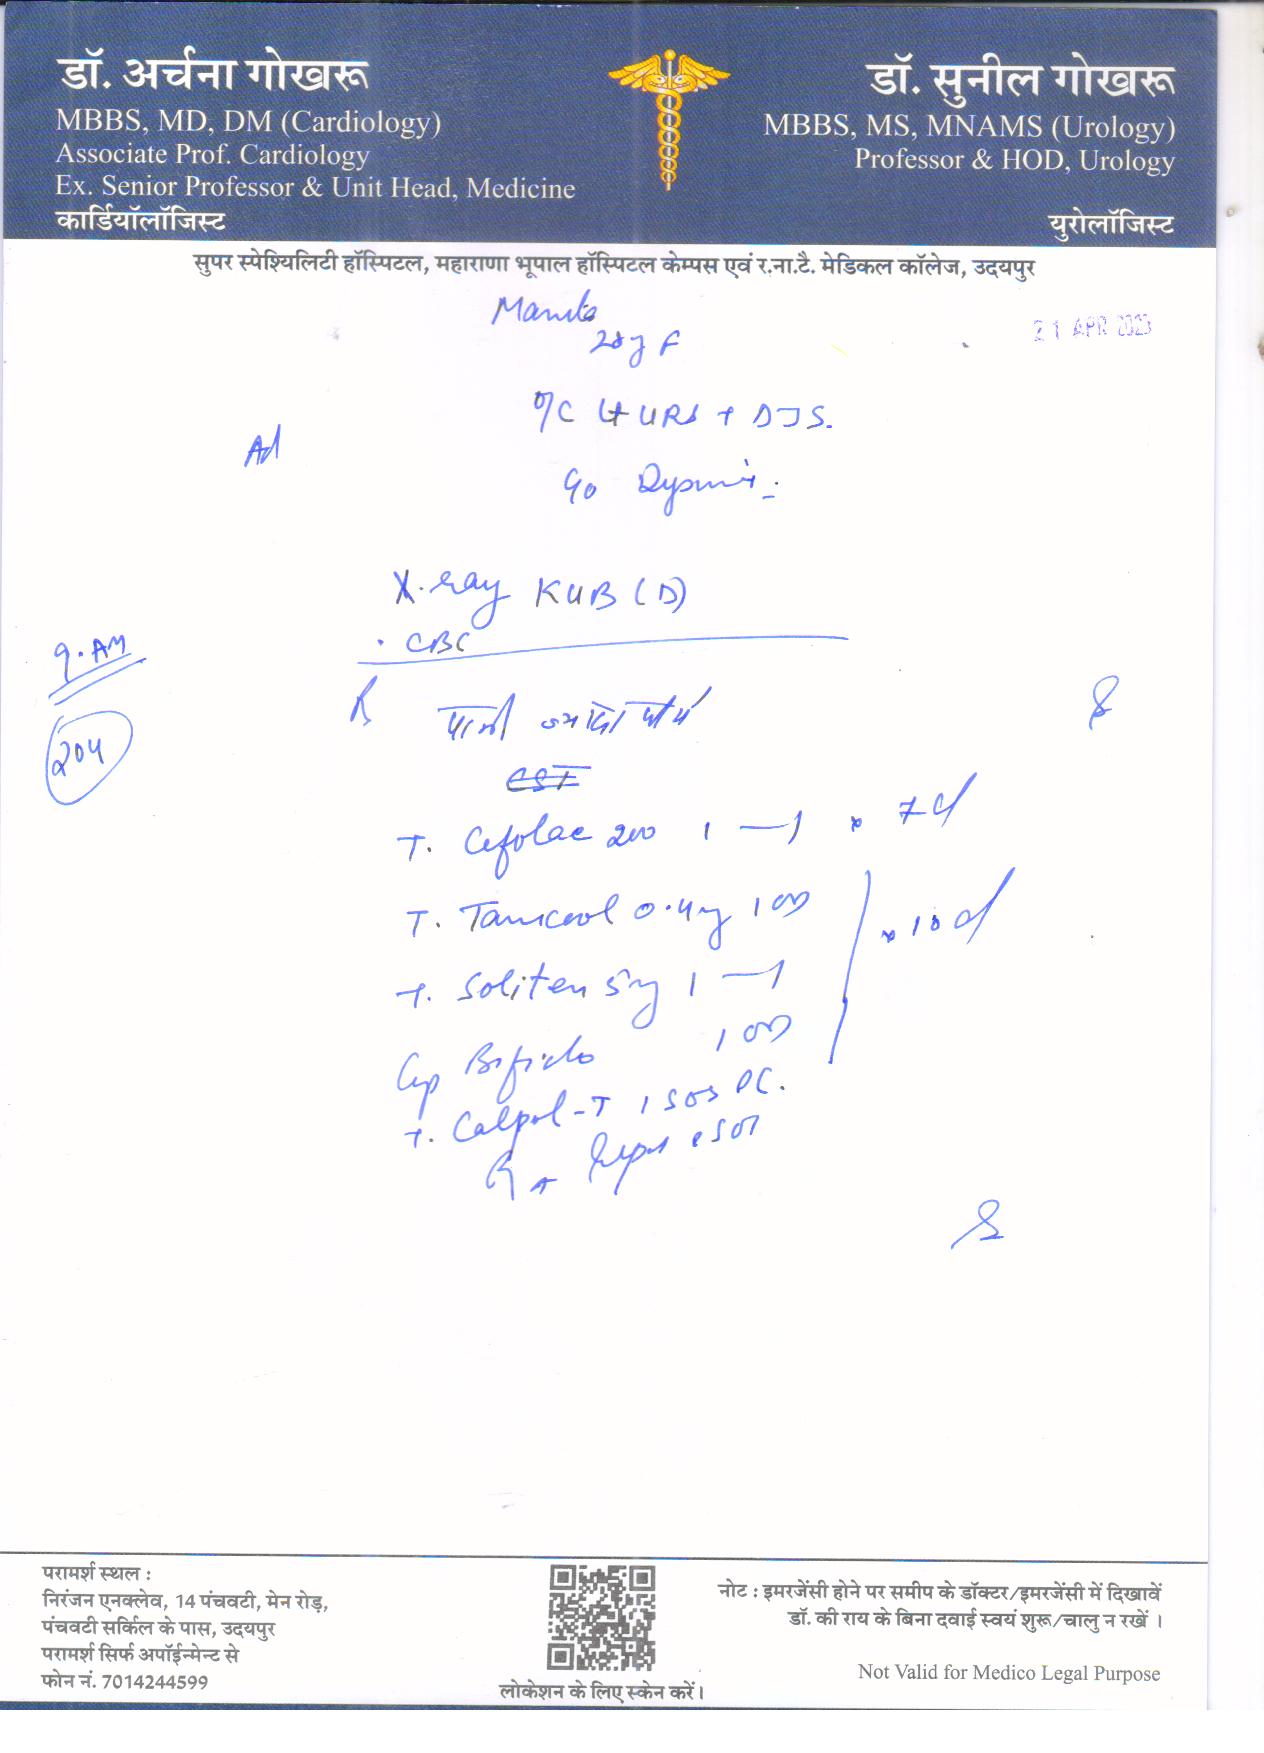 डॉ. अर्चना गोखरू
MBBS, MD, DM (Cardiology)
Associate Prof. Cardiology
Ex. Senior Professor & Unit Head, Medicine
कार्डियॉलॉजिस्ट
डॉ. सुनील गोखरू
MBBS, MS, MNAMS (Urology)
Professor & HOD, Urology
युरोलॉजिस्ट
सुपर स्पेश्यिलिटी हॉस्पिटल, महाराणा भूपाल हॉस्पिटल केम्पस एवं र.ना.टै. मेडिकल कॉलेज, उदयपुर
21 APR 2023
F
URS + DJS.
Ad
X-ray KUB (D)
. CBC
9.AM
204
पानी ज्यादा पीयें
T. Cefolac 200 1 — 1 x 7d
T. Tamcool 0.4mg 1 OD
x 10d
T. Soliten 5mg 1 — 1
Cap 1 OD
T. Calpol-T 1 SOS PC.
परामर्श स्थल :
निरंजन एनक्लेव, 14 पंचवटी, मेन रोड़,
पंचवटी सर्किल के पास, उदयपुर
परामर्श सिर्फ अपॉईन्मेन्ट से
फोन नं. 7014244599
लोकेशन के लिए स्केन करें।
नोट : इमरजेंसी होने पर समीप के डॉक्टर/इमरजेंसी में दिखावें
डॉ. की राय के बिना दवाई स्वयं शुरू/चालु न रखें ।
Not Valid for Medico Legal Purpose